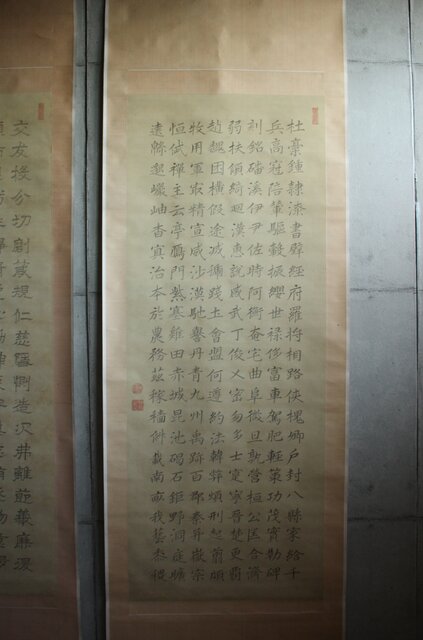 杜稾鍾隸漆書壁經府羅將相路俠槐卿戶封八縣家給千
兵高冠陪輦驅轂振纓世祿侈富車駕肥輕策功茂實勒碑
刻銘磻溪伊尹佐時阿衡奄宅曲阜微旦孰營桓公匡合濟
弱扶傾綺迴漢惠說感武丁俊乂密勿多士寔寧晉楚更霸
趙魏困橫假途滅虢踐土會盟何遵約法韓弊煩刑起翦頗
牧用軍最精宣威沙漠馳譽丹青九州禹跡百郡秦并嶽宗
恒岱禪主云亭鴈門紫塞雞田赤城昆池碣石鉅野洞庭曠
遠緜邈巖岫杳冥治本於農務茲稼穡俶載南畝我藝黍稷
交友投分切磨箴規仁慈隱惻造次弗離節義廉退